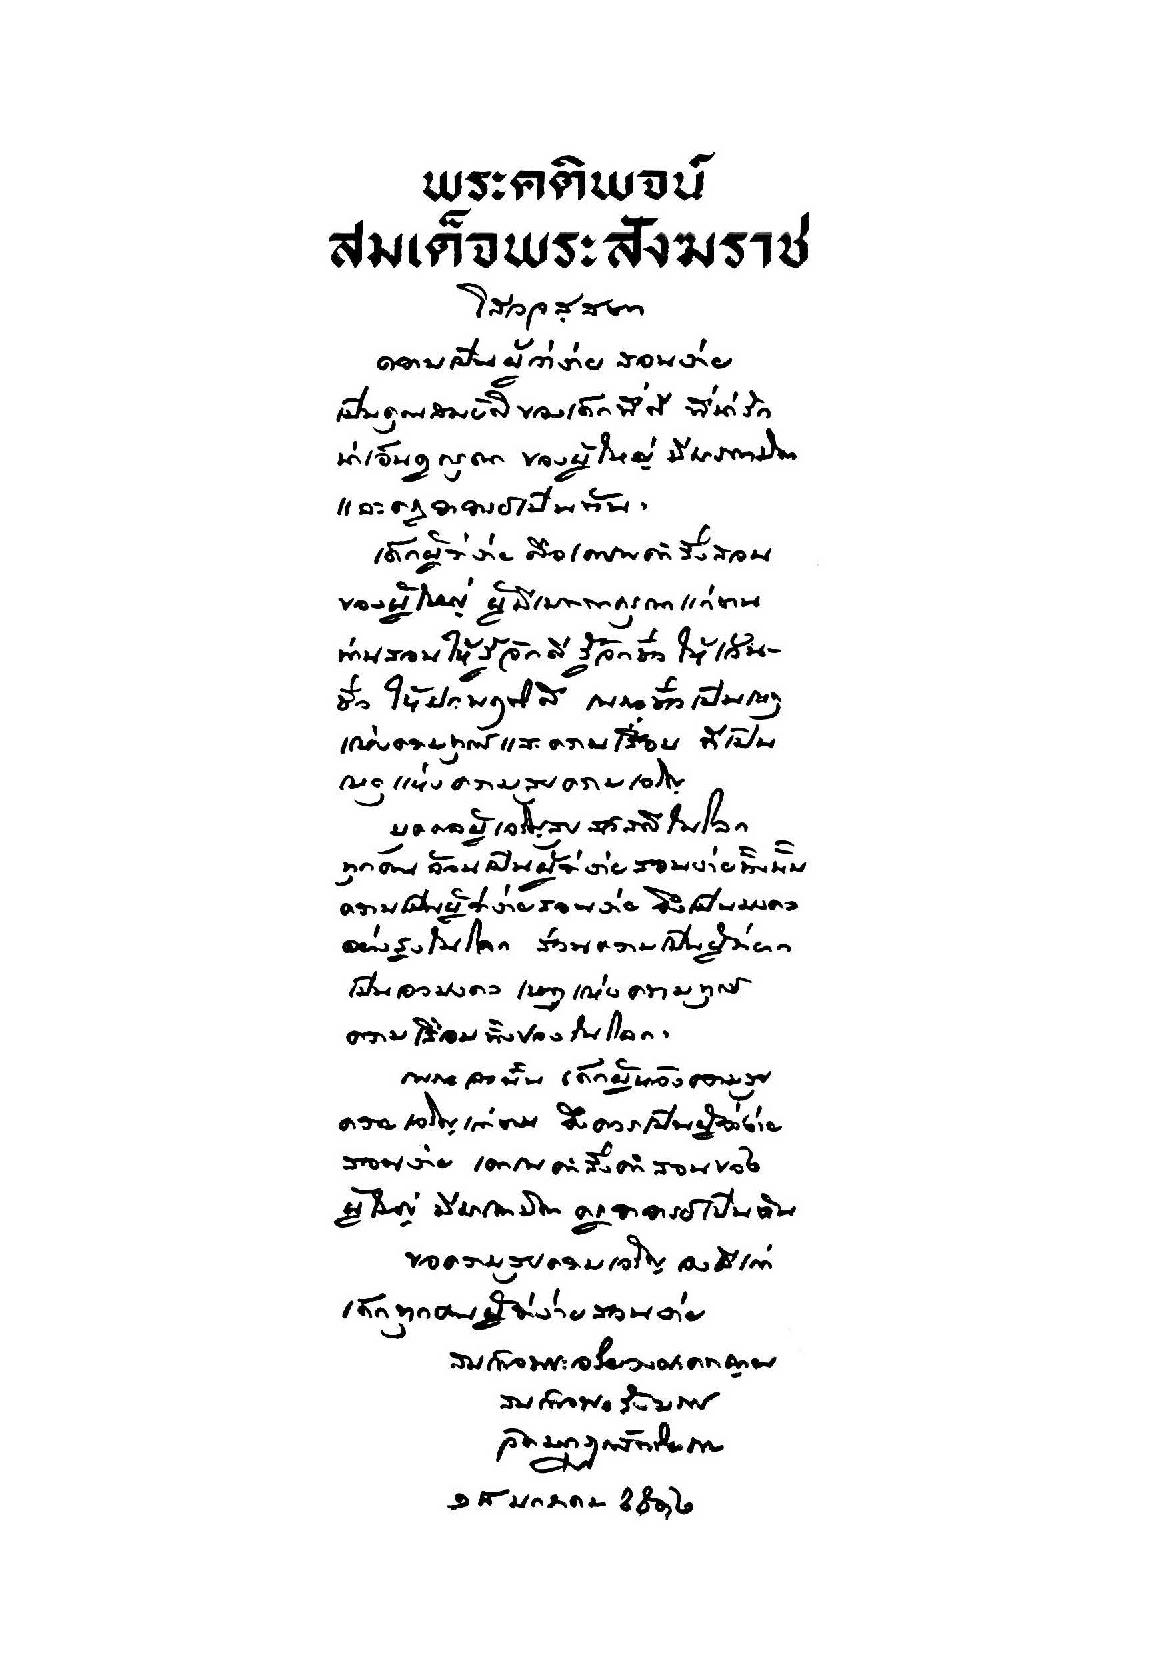 พระคติพจน์
สมเด็จพระสังฆราช
โสวจสฺสตา
ความเป็นผู้ว่าง่าย สอนง่าย
เป็นคุณสมบัติ ของเด็กที่ดี ที่น่ารัก
น่าเอ็นดูกรุณา ของผู้ใหญ่ มีมารดาบิดา
และครูอาจารย์เป็นต้น.
เด็กผู้ว่าง่าย คือเคารพคำสั่งสอน
ของผู้ใหญ่ ผู้มีเมตตากรุณาแก่ตน
ท่านสอนให้รู้จักดี รู้จักชั่ว ให้เว้น
ชั่ว ให้ประพฤติดี เพราะชั่วเป็นเหตุ
แห่งความทุกข์และความเสื่อม ดีเป็น
เหตุแห่งความสุขความเจริญ
บุคคลผู้เจริญสุขสวัสดีในโลก
ทุกคน ล้วนเป็นผู้ว่าง่ายสอนง่ายทั้งนั้น
ความเป็นผู้ว่าง่ายสอนง่าย จึงเป็นมงคล
อย่างสูงในโลก ส่วนความเป็นผู้ว่ายาก
เป็นอวมงคล เหตุแห่งความทุกข์
ความเสื่อมทั้งปวงในโลก.
เพราะฉะนั้น เด็กผู้หวังความสุข
ความเจริญแก่ตน จึงควรเป็นผู้ว่าง่าย
สอนง่าย เคารพคำสั่งคำสอนของ
ผู้ใหญ่ มีมารดาบิดา ครูอาจารย์เป็นต้น
ขอความสุขความเจริญ จงมีแก่
เด็กทุกคนผู้ว่าง่ายสอนง่าย
สมเด็จพระอริยวงศาคตญาณ
สมเด็จพระสังฆราช
มกราคม